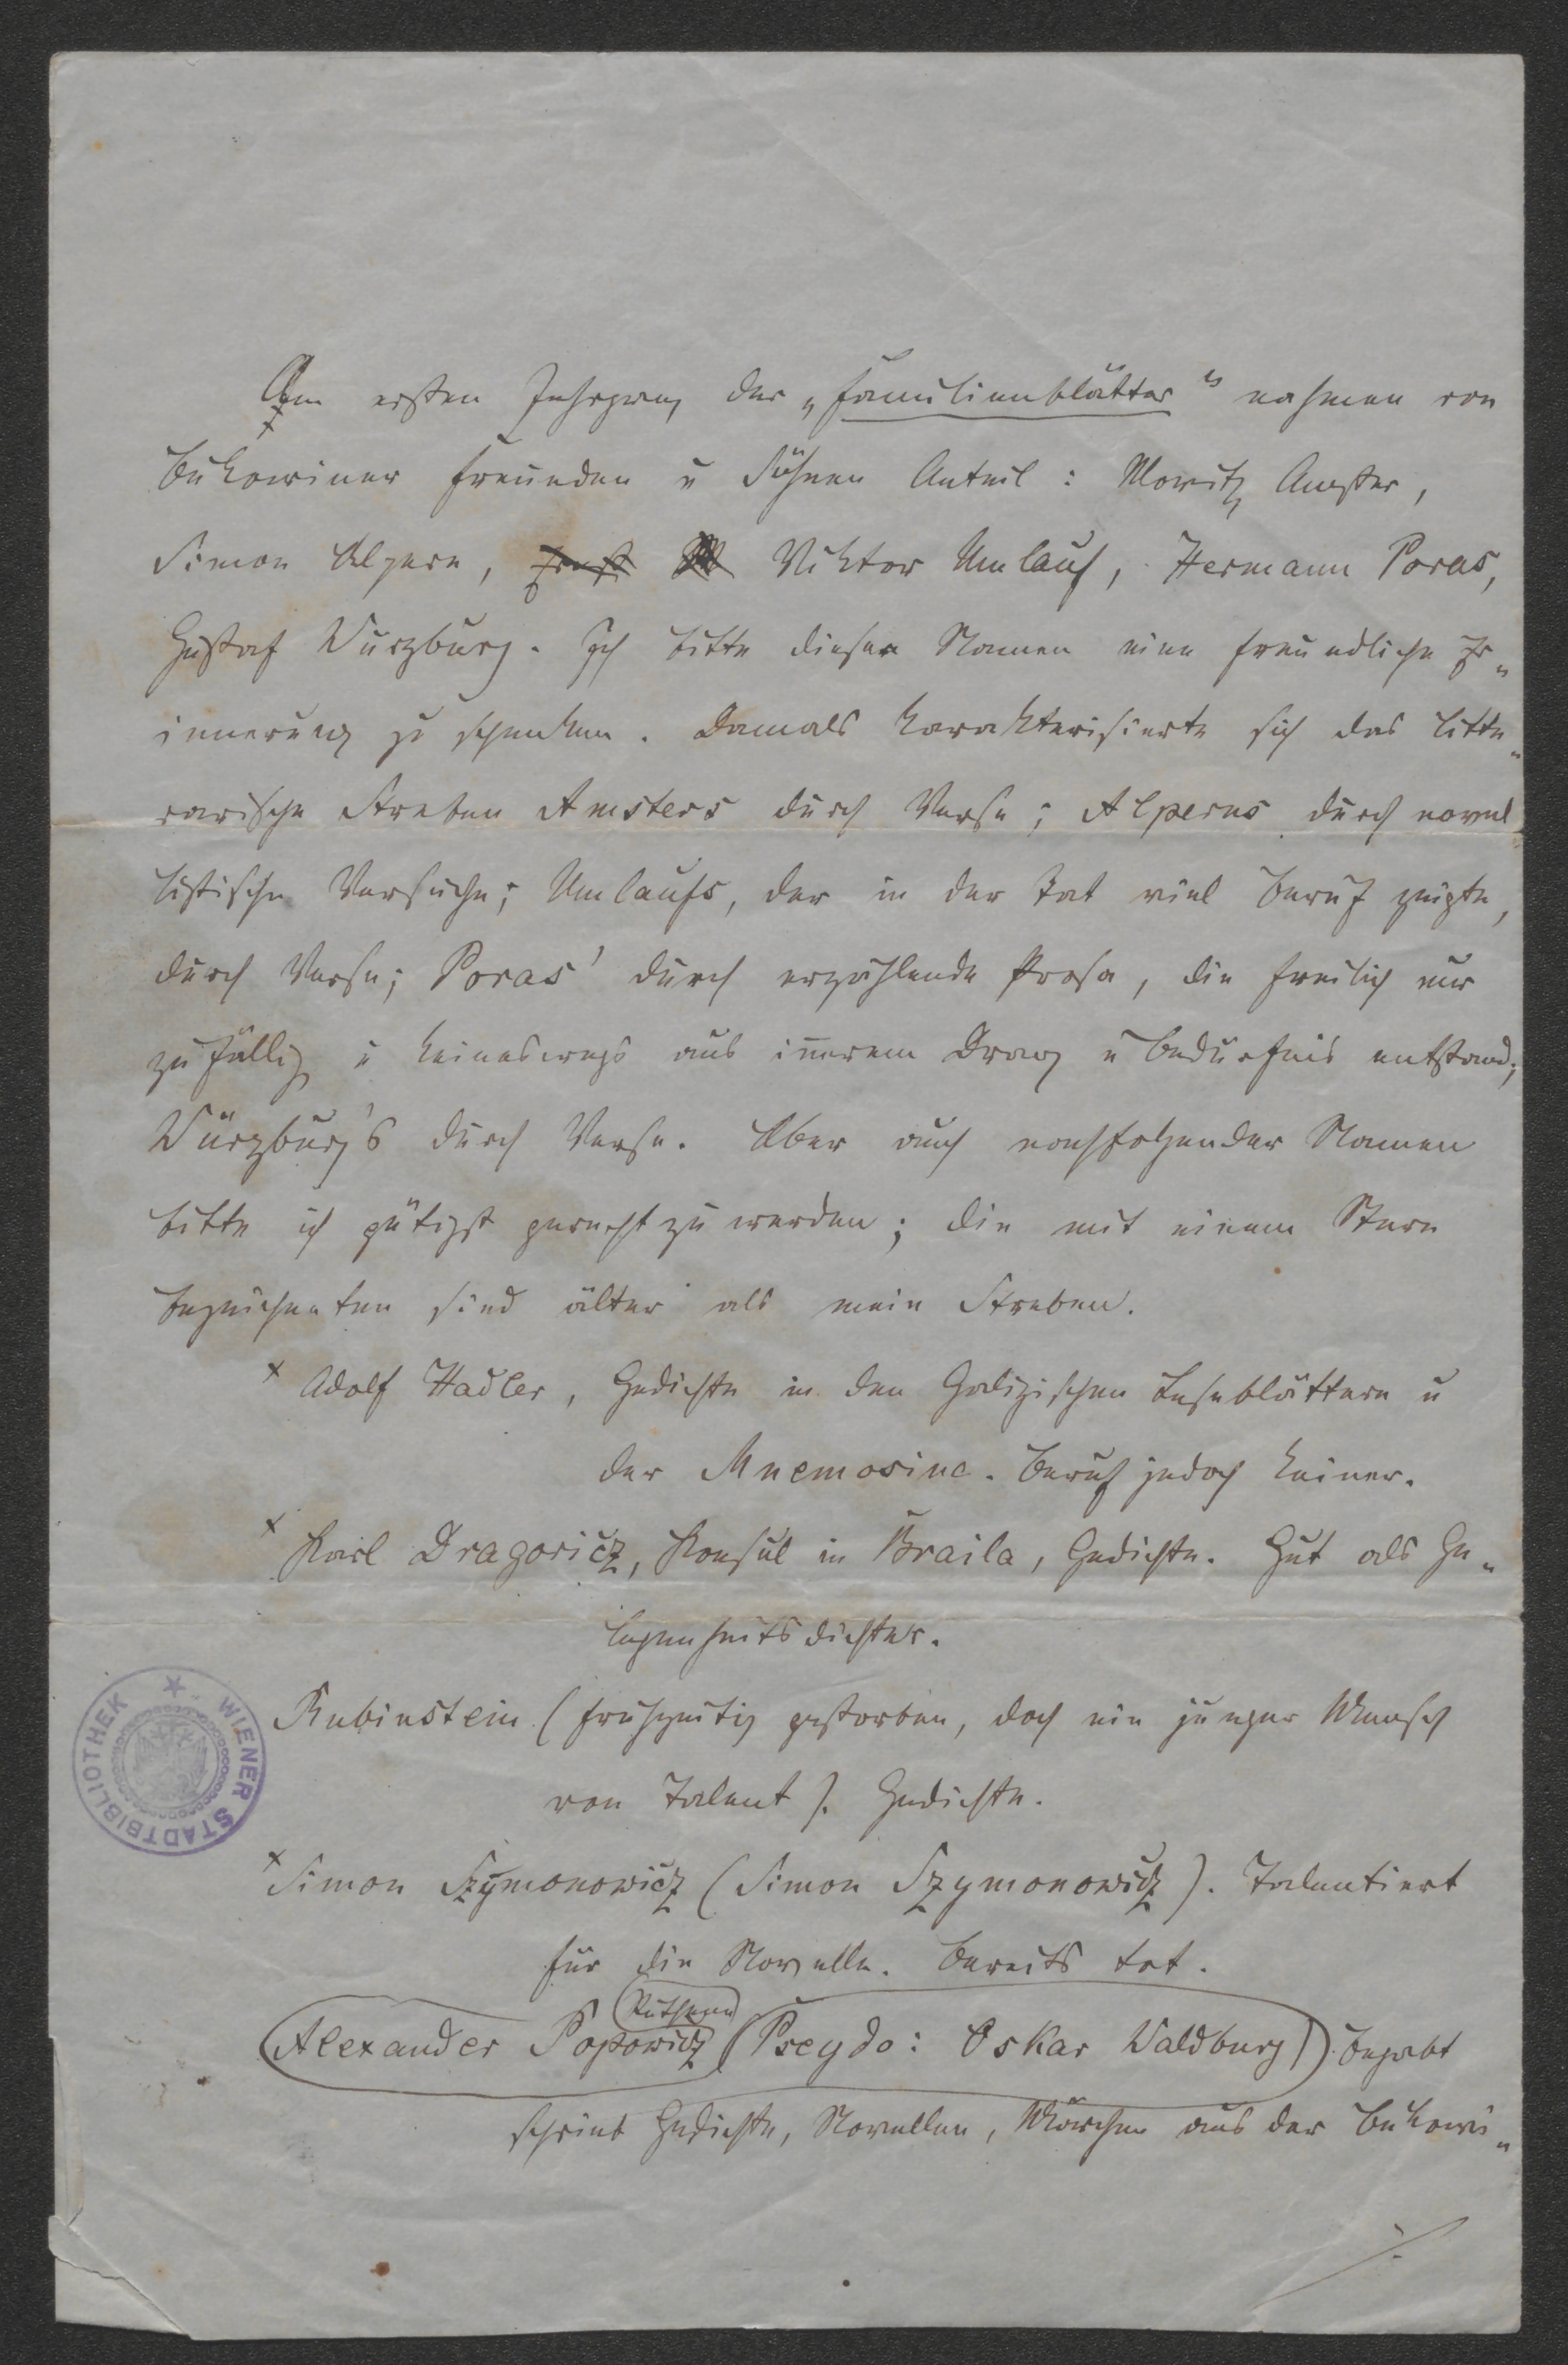 Am ersten Jahrgang der „Familienblätter“ nahmen von
Bukowiner Freunden u Söhnen Anteil: Moritz Amster,
Simon Alpern, Ernst Viktor Umlauf, Hermann Poras,
Gustaf Würzburg. Ich bitte dieser Namen eine freundliche Er„
innerung zu schenken. Damals karakterisierte sich das litte„
rarische Streben Amsters durch Verse; Alperns durch novel
listische Versuche; Umlaufs, der in der Tat viel Beruf zeigte,
durch Verse; Poras' durch erzählende Prosa, die freilich nur
zufällig u keineswegs aus innerem Drang u Bedürfnis entstand;
Würzburg's durch Verse. Aber auch nachfolgender Namen
bitte ich gütigst gerecht zu werden; die mit einem Stern
bezeichneten sind älter als mein Streben.
x Adolf Hadler, Gedichte in den Galizischen Leseblättern u
der Mnemosine. Beruf jedoch keiner.
x Karl Dragoricz, Konsul in Braila, Gedichte. Gut als Ge„
legenheitsdichter.
Rubinstein (frühzeitig gestorben, doch ein junger Mensch
von Talent). Gedichte.
x Simon Szymonowicz (Simon Szymonowicz). Talentiert
für die Novelle. Bereits tot.
Ruthene
Alexander Popowicz (Pseydo: Oskar Waldburg). Begabt
schrieb Gedichte, Novellen, Märchen aus der Bukowi„
./.
WIENER STADTBIBLIOTHEK